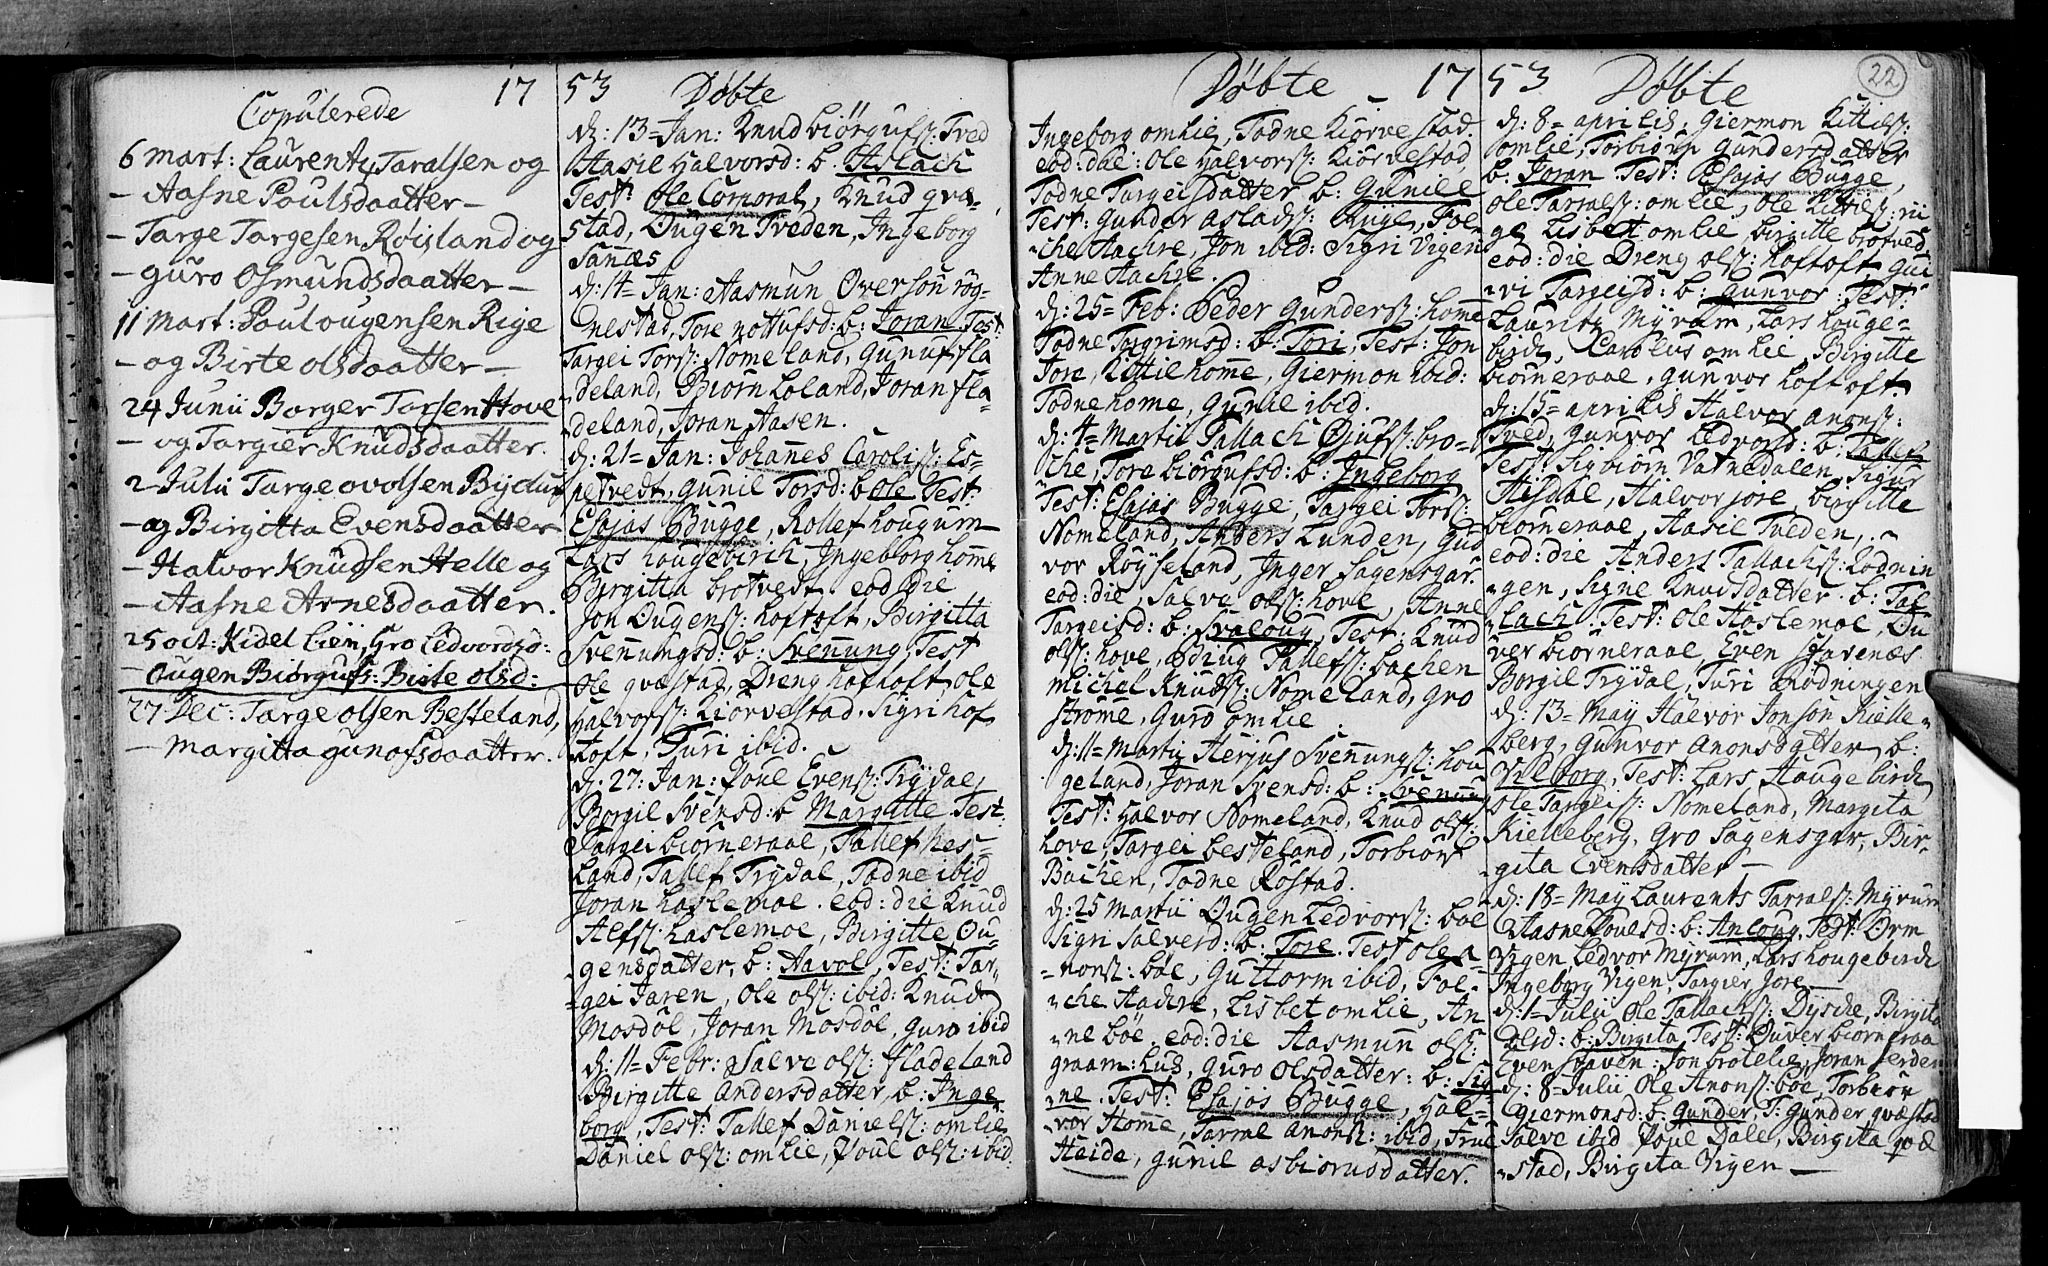 17 53
Copulerede
6 Mart: Laurents Taralsen og
- Aasne Poulsdaatter -
- Targe Targesen Røisland og
- Guro Osmundsdaatter -
11 Mart: Poul ougensen Rige
- og Birte olsdaatter -
24 Junii Borger Torsen Hove
- og Targier Knudsdaatter.
2 Julii Targe ovolsen
- og Birgitta Evensdaatter
- Halvor Knudsen Helle og
- Aasne Arnesdaatter.
25 oct: Kidel Lien, Gro Ledvordsd:
- Ougen Biørgufs: Birte olsd:
27 Dec: Targe olsen Besteland,
- Margitta gunofsdaatter.
Døbte
d: 13 Jan: Knud biørgufs: Tved
Aasil Halvorsd: b. Aslach
Test: Ole Corporal, Knud qvæ-
stad, Ougen Tveden, Ingeborg
Sanæs
d: 14 Jan: Aasmun Overson røg-
nestad, Tore nottufsd: b: Joran Test:
Targei Tors: Nomeland, Gunuf fla
deland, Biørn Loland, Joran fla-
deland, Joran Aasen.
d: 21 Jan: Johannes Carolis: Es-
petvedt, gunil Torsd: b: Ole Test:
Esajas Bugge, Rollef hougum
Lars hougebirch, Ingeborg homme
Byrgitta brotvedt. eod: die
Jon Ougens: hoftoft, Birgitta
Svennungsd: b: Svennung Test
Ole qvæstad, Dreng hoftoft, ole
Halvors: Kiørvestad. Sigri hof
toft, Turi ibid.
d: 27: Jan: Poul Evens: Trydal
Borgil Svensd: b Margitte Test:
Targei biørneraae, Tallef hes-
land, Tallef Trydal, Todne ibid
Joran haslemoe. eod: die Knud
Alfs: haslemoe, Birgitte Ou-
gensdatter, b: Aavol, Test: Tar-
gei Jaren, ole ols: ibid: Knud
Mosdøl, Joran Mosdøl, guro ibid
d: 11 Febr: Salve ols: fladeland
Birgitte Andersdatter, b: Inge
borg, Test: Tallef Daniels: omlie
Daniel ols: omlie, Poul ols: ibid:
Døbte 17 53
Ingeborg omlie, Todne Kiørvestad.
eod: die: Ole Halvors: Kiørvestad,
Todne Targeisdatter b: Gunild
Test: gunder aslads: Rüge, Fol-
che Aachre, Jon ibid: Sigri Vigen
Anne Aachre.
d: 25 Feb: Peder Gunders: homme
Todne Torgrimsd: b: Tori, Test: Jon
Jore, Kittil homme, Giermon ibid:
Todne home, Gunil ibid.
d: 4 Martii Tallach Ojufs: bro-
che, Tore biørgufsd: b: Ingeborg
Test: Esajas Bugge, Targei Tors:
Nomeland, Anders Lunden, Gun
vor Røyseland, Inger Sagensgar.
eod: die, Salve ols: hove, Anne
Targeisd: b: Svaloug, Test: Knud
ols: hove, Tallefs: bachen
Michel Knuds: Nomeland, Gro
Strøme, Guro omlie.
d: 11 Martii Herjus Svennungs: hou
geland, Joran Svensd: b: Svenun
Test: Halvor Nomeland, Knud ols:
hove, Targei besteland, Torbiør
Bachen, Todne Rostad.
d: 25 Martii Ougen Ledvors: boe
Sigri Salversd: b: Tore. Test: ole a-
nons: bøe, Guttorm ibid, Fol-
che Aachre, Lisbet omlie, An
ne bøe, eod: die Aasmun ols:
graam: Lus, Guro olsdatter: b: Sig-
ne. Test: Esajas Bugge, Hal-
vor Home, Tarral Anons: ibid, Frue
Heide, gunil asbiørnsdatter.
Døbte
22
d: 8 aprilis, Giermon Kittils:
omlie, Torbiørn Gundersdatter
b. Joran Test: Esajas Bugge,
ole Tarrals: omlie, ole Kittils: ri
ge Lisbet omlie, birgitte brotved
eod: die Dreng ols: hoftoft, Gui
vi Targeisd: b: Gunvor: Test:
Laurits Myrum, Lars houge-
birch, Carolus omlie, Birgitte
biørneraae, gunvor hoftoft.
d: 15 aprilis Halvor anons:
Tved, Gunvor Ledvorsd: b: Tallef
Test: Sigbiørn Vatnedalen, Sigur
Hisdal, Halvor jore, birgitte
biørneraae, Aasil Tveden,
eod: die Anders Tallachs: Rødnin
gen, Signe Knudsdatter. b: Tal
lach. Test: Ole Haslemoe, Ou
ver biørneraae, Even Stavenæs
Borgil Trydal, Turi Rødningen
d: 13 May Halvor Jonson Kielle-
berg, Gunvor Anonsdatter b:
Vilborg, Test: Lars Haugebirch
ole Targeis: Nomeland, Margita
Kielleberg, Gro Sagensgar, Bir-
gita Evensdatter -
d: 18 May Laurents Tarrals: Myrum
Aasne Poulsd: b: Anloug. Test: Orm
Vigen, Ledvor Myrum, Lars hougebirch
Ingeborg Vigen, Targier Jore -
d: 1 Julii Ole Tallachs: Dysche, Birgita
Olsd: b: Birgita Test: Ouver biørnraa
Even Staven: Jon brotelie, Joran jerden
d: 8 Julii Ole Anons: bøe, Torbiør
Giermonsd: b: Gunder, T: Gunder qvæstad
Salve ibid Poul Dale, Birgita qvæ
stad, Birgita Vigen -